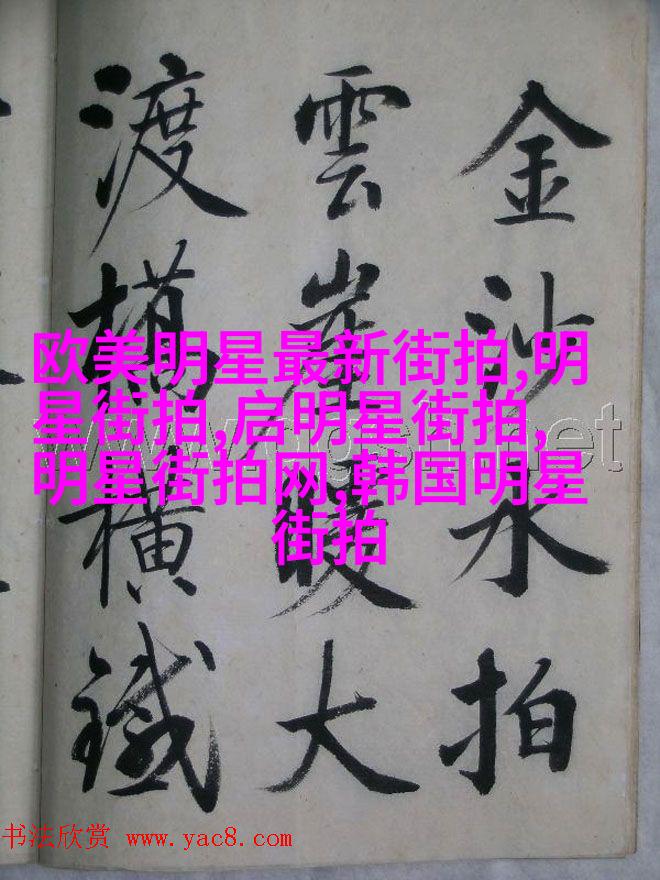 金沙水拍
雲崖暖大
渡橋橫鐵
欧美明星最新街拍,明
星街拍,启明星街拍,
明星街拍网,韩国明星
街拍
书法欣赏 www.yac8.com